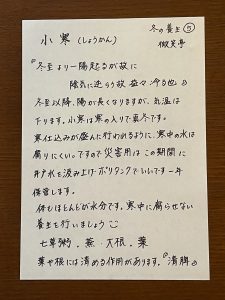 冬の養生⑤
微笑亭
小寒(しょうかん)
『冬至より一陽起るが故に
陰気に逆らう故 益々冷る也』
冬至以降、陽が長くなりますが、気温は
下ります。小寒は寒の入りで真冬です。
寒仕込みが盛んに行われるように、寒中の水は
腐りにくい。ですので災害用はこの期間に
井戸水を汲み上げ・ポリタンクでいいです一年
保管します。
体もほとんどが水分です。寒中に腐らせない
養生を行いましょう
七草粥・蕪・大根・葉
葉や根には清める作用があります。『清腸』